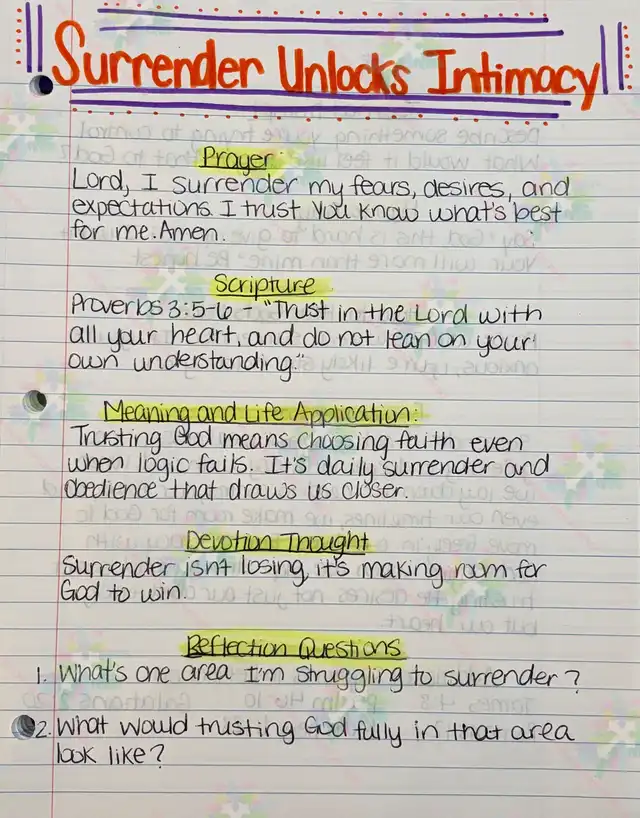 Surrender Unlocks Intimacy
Prayer:
Lord, I surrender my fears, desires, and
expectations. I trust you know what's best
for me. Amen.
Scripture
Proverbs 3:5-6 - "Trust in the Lord with
all your heart, and do not lean on your
own understanding."
Meaning and Life Application:
Trusting God means choosing faith even
when logic fails. It's daily surrender and
obedience that draws us closer.
Devotion Thought
Surrender isn't losing, it's making room for
God to win.
Reflection Questions
1. What's one area I'm struggling to surrender?
2. What would trusting God fully in that area
look like?